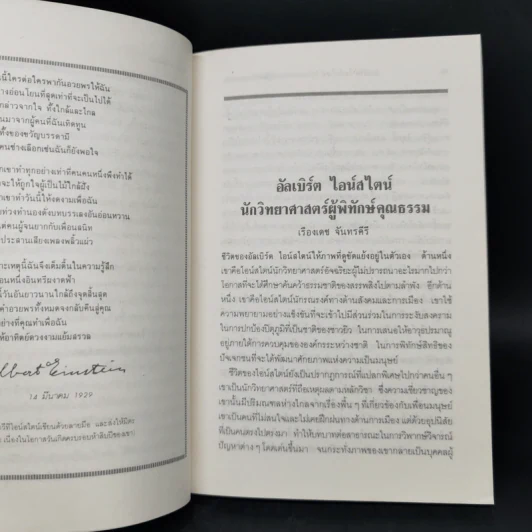 นี้ใครต่อใครพากันอวยพรให้ฉัน
างอ่อนโยนที่สุดเท่าที่จะเป็นไปได้
กล่าวจากใจ ทั้งใกล้และไกล
นมาจากผู้คนที่ฉันเทิดทูน
ทั้งของขวัญบรรดามี
คนช่างเลือกเช่นฉันก็ยังพอใจ
กเขาทำทุกอย่างเท่าที่คนคนหนึ่งพึงทำได้
จะให้ถูกใจผู้เป็นไม้ใกล้ฝั่ง
กเขาทำวันนี้ให้งดงามเพื่อฉัน
ท่วงทำนองดังบทบรรเลงอันอ่อนหวาน
ต่คนผู้จนยากก็เพื่อนสนิท
ประสานเสียงเพลงพลิ้วแผ่ว
าะเหตุนี้ฉันจึงตื่นเต้นในความรู้สึก
นหนึ่งอินทรีผงาดฟ้า
นี้วันอันยาวนานใกล้ถึงจุดสิ้นสุด
คำอวยพรทั้งหมดจงกลับคืนสู่คุณ
ย่างที่คุณทำเพื่อฉัน
ห้อาทิตย์ดวงงามแย้มสรวล
Albert Einstein
14 มีนาคม 1929
อัลเบิร์ต ไอน์สไตน์
นักวิทยาศาสตร์ผู้พิทักษ์คุณธรรม
เรืองเดช จันทรคีรี
ชีวิตของอัลเบิร์ต ไอน์สไตน์ให้ภาพที่ดูขัดแย้งอยู่ในตัวเอง ด้านหนึ่ง
เขาคือไอน์สไตน์นักวิทยาศาสตร์อัจฉริยะผู้ไม่ปรารถนาอะไรมากไปกว่า
โอกาสที่จะได้ศึกษาค้นคว้าธรรมชาติของสรรพสิ่งไปตามลำพัง อีกด้าน
หนึ่ง เขาคือไอน์สไตน์นักรณรงค์ทางด้านสังคมและการเมือง เขาใช้
ความพยายามอย่างแข็งขันที่จะเข้าไปมีส่วนร่วมในการระงับสงคราม
ในการปกป้องปิตุภูมิที่เป็นชาติของชาวยิว ในการเสนอให้อาวุธปรมาณู
อยู่ภายใต้การควบคุมขององค์กรระหว่างชาติ ในการพิทักษ์สิทธิของ
ปัจเจกชนที่จะได้พัฒนาศักยภาพแห่งความเป็นมนุษย์
ชีวิตของไอน์สไตน์ยังเป็นปรากฏการณ์ที่แปลกพิเศษไปกว่าคนอื่น ๆ
เขาเป็นนักวิทยาศาสตร์ที่ถือเหตุผลตามหลักวิชา ซึ่งความเชี่ยวชาญของ
เขานั้นมีปริมณฑลห่างไกลจากเรื่องพื้น ๆ ที่เกี่ยวข้องกับเพื่อนมนุษย์
เขาเป็นคนที่ไม่สนใจและไม่เคยฝึกฝนทางด้านการเมือง แต่ด้วยอุปนิสัย
ที่เป็นคนตรงไปตรงมา ทำให้บทบาทต่อสาธารณะในการวิพากษ์วิจารณ์
ปัญหาต่าง ๆ โดดเด่นขึ้นมา จนกระทั่งภาพของเขากลายเป็นบุคคลผู้